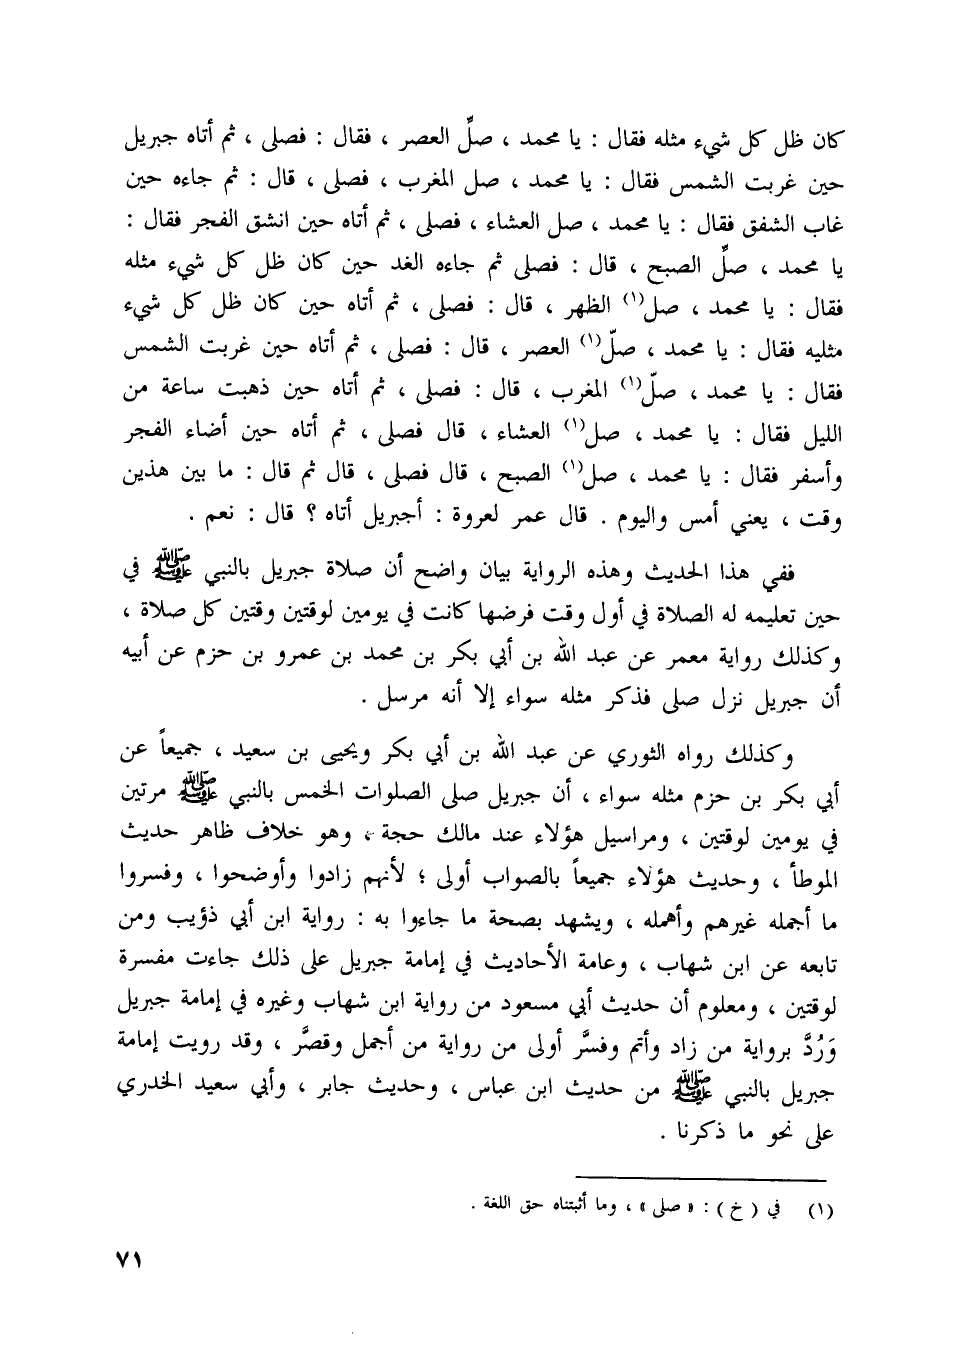 كان ظل كل شيء مثله فقال : يا محمد ، صلِّ العصر ، فقال : فصلى ، ثم أتاه جبريل
حين غربت الشمس فقال : يا محمد ، صل المغرب ، فصلى ، قال : ثم جاءه حين
غاب الشفق فقال : يا محمد ، صل العشاء ، فصلى ، ثم أتاه حين انشق الفجر فقال :
يا محمد ، صلِّ الصبح ، قال : فصلى ثم جاءه الغد حين كان ظل كل شيء مثله
فقال : يا محمد ، صل(١) الظهر ، قال : فصلى ، ثم أتاه حين كان ظل كل شيء
مثليه فقال : يا محمد ، صلّ(١) العصر ، قال : فصلى ، ثم أتاه حين غربت الشمس
فقال : يا محمد ، صلّ(١) المغرب ، قال : فصلى ، ثم أتاه حين ذهبت ساعة من
الليل فقال : يا محمد ، صل(١) العشاء ، قال فصلى ، ثم أتاه حين أضاء الفجر
وأسفر فقال : يا محمد ، صل(١) الصبح ، قال فصلى ، قال ثم قال : ما بين هذين
وقت ، يعني أمس واليوم . قال عمر لعروة : أجبريل أتاه ؟ قال : نعم .
ففي هذا الحديث وهذه الرواية بيان واضح أن صلاة جبريل بالنبي ﷺ في
حين تعليمه له الصلاة في أول وقت فرضها كانت في يومين لوقتين وقتين كل صلاة ،
وكذلك رواية معمر عن عبد الله بن أبي بكر بن محمد بن عمرو بن حزم عن أبيه
أن جبريل نزل صلى فذكر مثله سواء إلا أنه مرسل .
وكذلك رواه الثوري عن عبد الله بن أبي بكر ويحيى بن سعيد ، جميعاً عن
أبي بكر بن حزم مثله سواء ، أن جبريل صلى الصلوات الخمس بالنبي ﷺ مرتين
في يومين لوقتين ، ومراسيل هؤلاء عند مالك حجة ، وهو خلاف ظاهر حديث
الموطأ ، وحديث هؤلاء جميعاً بالصواب أولى ؛ لأنهم زادوا وأوضحوا ، وفسروا
ما أجمله غيرهم وأهمله ، ويشهد بصحة ما جاءوا به : رواية ابن أبي ذؤيب ومن
تابعه عن ابن شهاب ، وعامة الأحاديث في إمامة جبريل على ذلك جاءت مفسرة
لوقتين ، ومعلوم أن حديث أبي مسعود من رواية ابن شهاب وغيره في إمامة جبريل
وَرُدَّ برواية من زاد وأتم وفسَّر أولى من رواية من أجمل وقصَّر ، وقد رويت إمامة
جبريل بالنبي ﷺ من حديث ابن عباس ، وحديث جابر ، وأبي سعيد الخدري
على نحو ما ذكرنا .
(١) في ( خ ) : « صلى » ، وما أثبتناه حق اللغة .
٧١